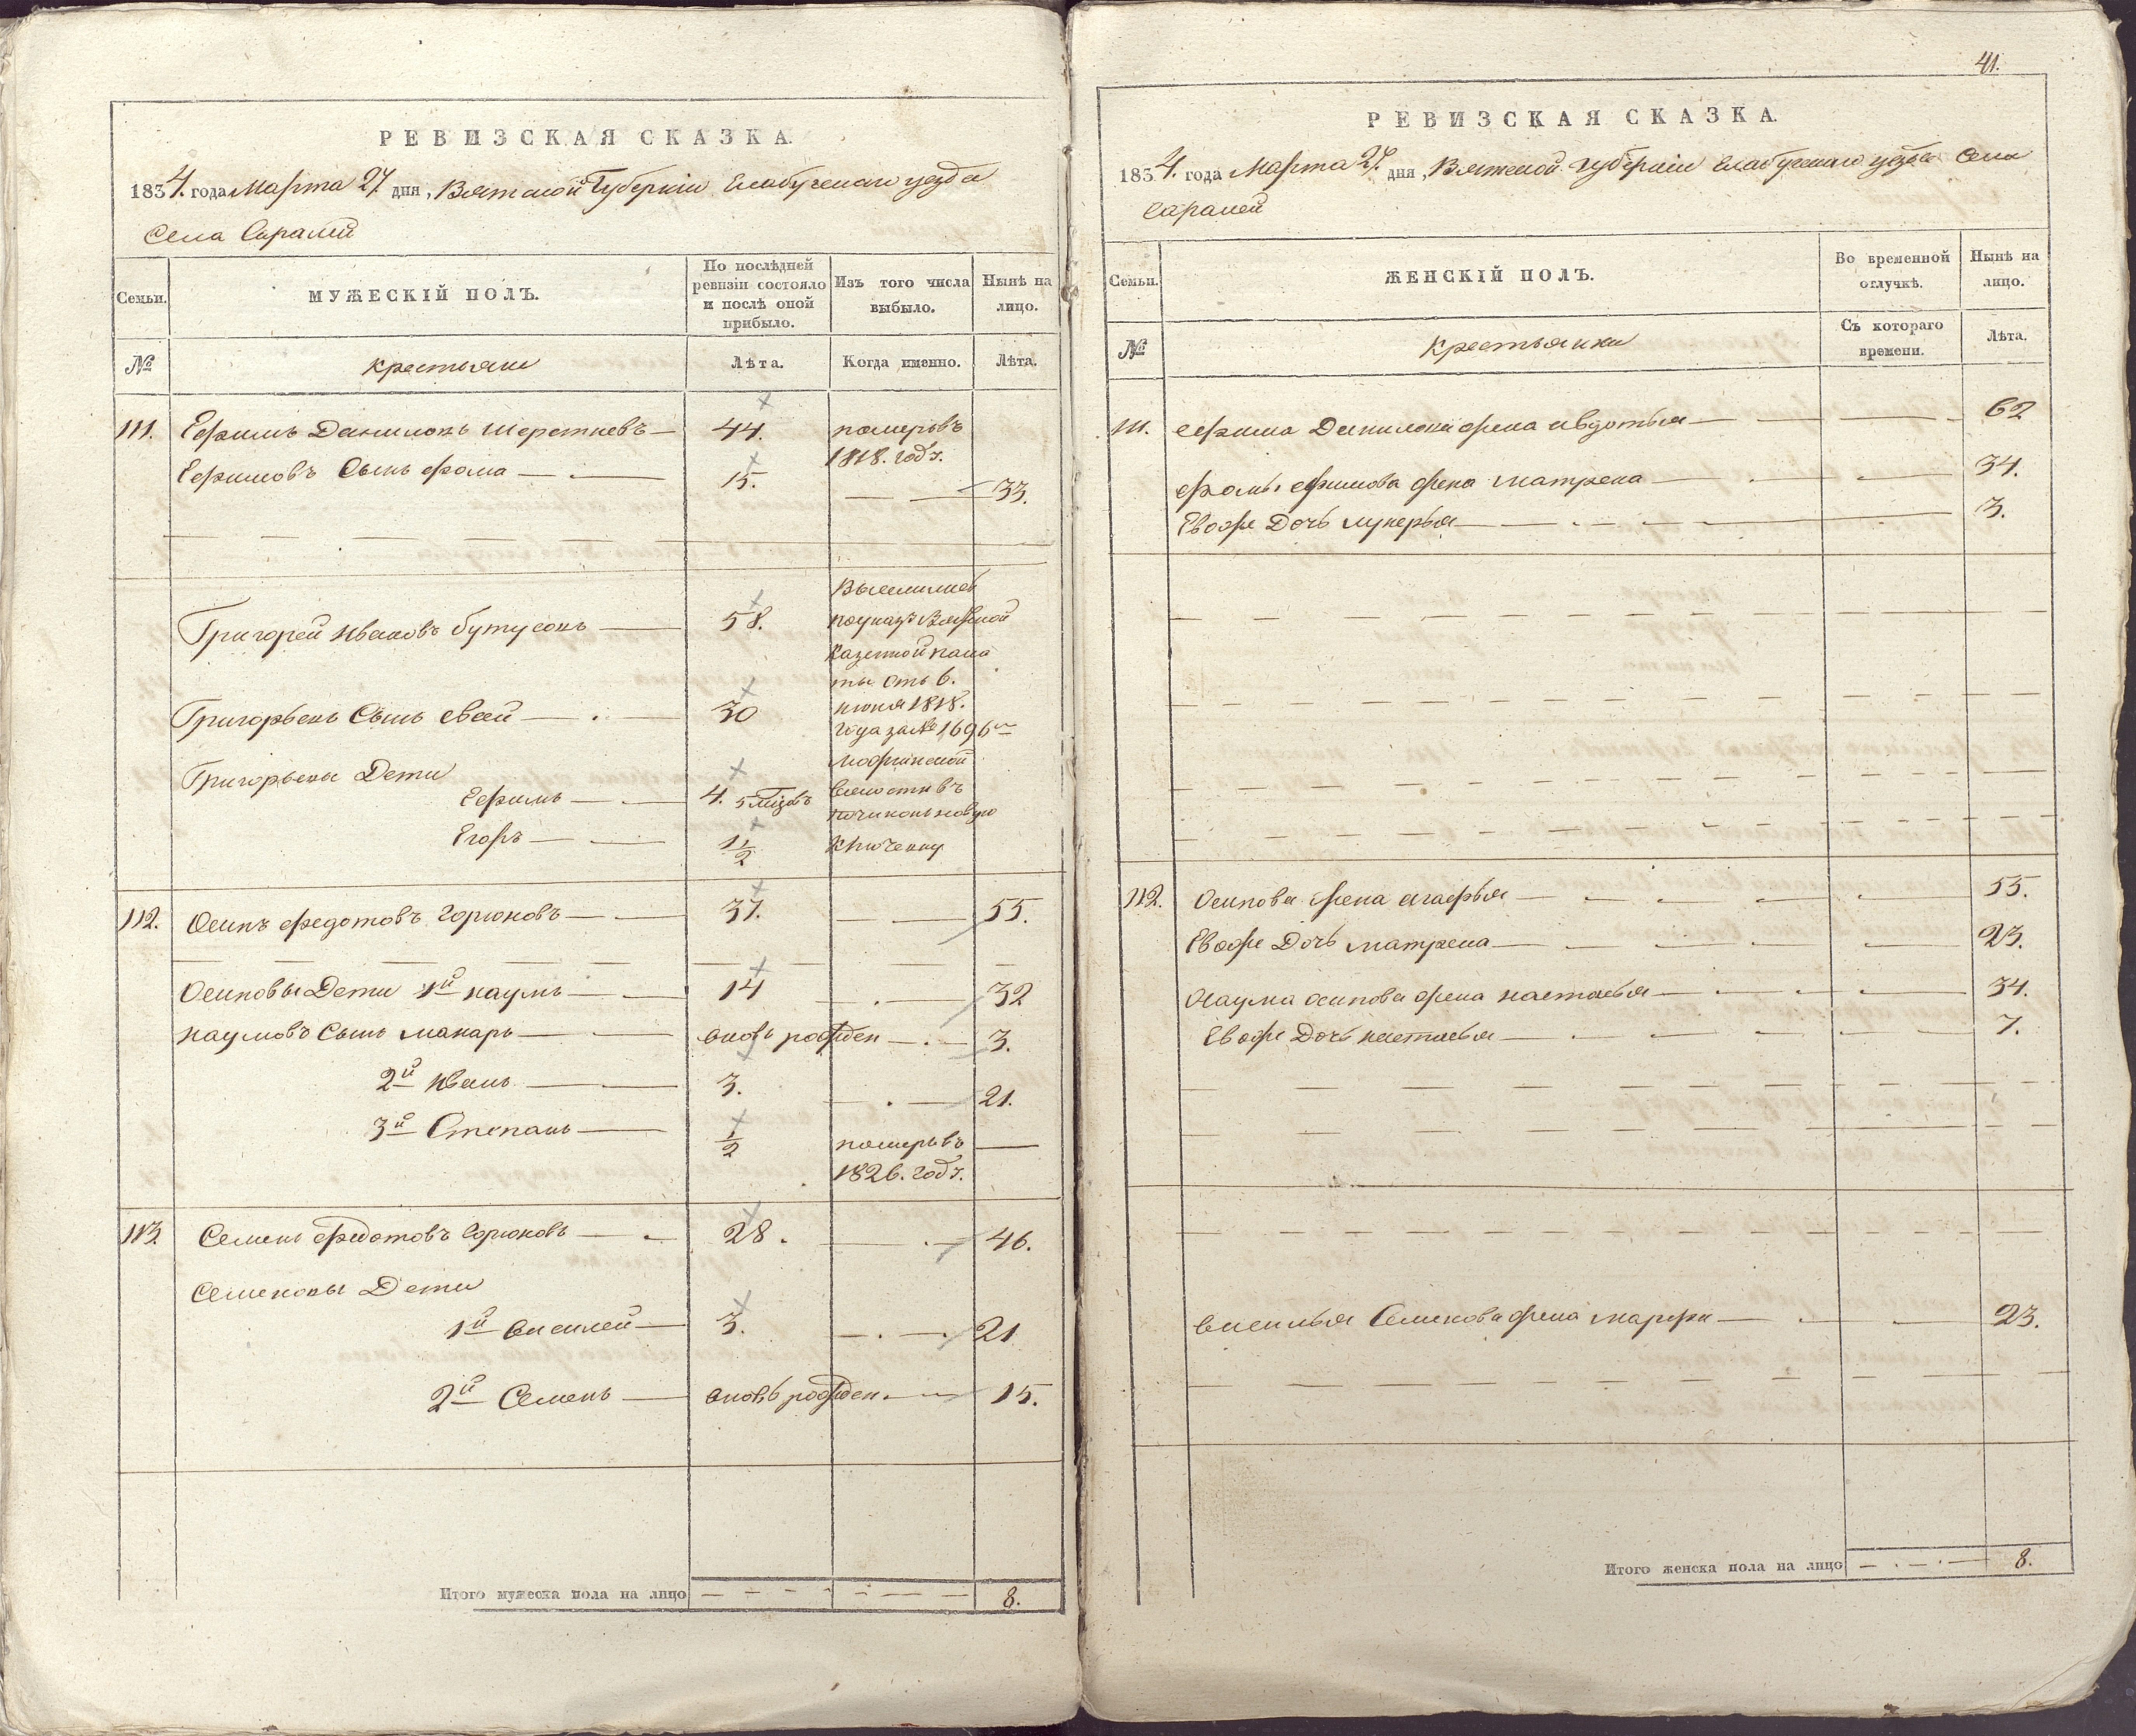 РЕВИЗСКАЯ СКАЗКА.
1834. года Марта 27 дня, Вятской Губернiи Елабужскаго уезда
Села Саралей
Семьи.
МУЖЕСКIЙ ПОЛЪ.
По послѣдней ревизiи состояло и послѣ оной прибыло.
Изъ того числа выбыло.
Нынѣ на лицо.
№
крестьяне
Лѣта.
Когда именно.
Лѣта.
111. Ефимъ Даниловъ 44. померъ въ
1818. годѣ.
Ефимовъ Сынъ фома 15. 33.
Григорей Ивановъ 58.
Казенной пала
ты отъ 6.
Григорьевъ Сынъ 30 июня 1818.
года за № 1696
Григорьевы Дети
Ефимъ 4.
волости въ
Егоръ 1 1/2
112. Осипъ федотовъ Горюновъ 37. 55.
Осиповы Дети 1й наумъ 14 32
наумовъ Сынъ макаръ вновь рожден 3.
2й Иванъ 3. 21.
3й Степанъ 1/2 померъ въ
1826. годѣ.
113. Семенъ федотовъ Горюновъ 28. 46.
Семеновы Дети
1й василей 3. 21
2й Семенъ вновь рожден. 15.
Итого мужеска пола на лицо 8.
41.
РЕВИЗСКАЯ СКАЗКА.
1834. года Марта 27. дня, Вятской губернiи Елабужскаго уезда Села
Саралей
Семьи.
ЖЕНСКIЙ ПОЛЪ.
Во временной отлучкѣ.
Нынѣ на лицо.
№
Крестьянки
Съ котораго времени.
Лѣта.
111. ефима Данилова жена авдотья 62
фомы ефимова жена матрена 34.
Евоже Дочь лукерья 3.
112. Осипова жена агафья 55.
Евоже Дочь матрена 23.
Наума осипова жена настасья 34.
Евоже Дочь настасья 7.
василья Семенова жена марфа 23.
Итого женска пола на лицо 8.